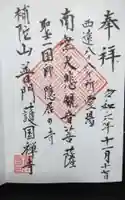 奉拝
令和六年十一月十六日
西遠八八ヶ所霊場
南無大悲観世音菩薩
聖一国師隠居の寺
補陀山普門護国禅寺